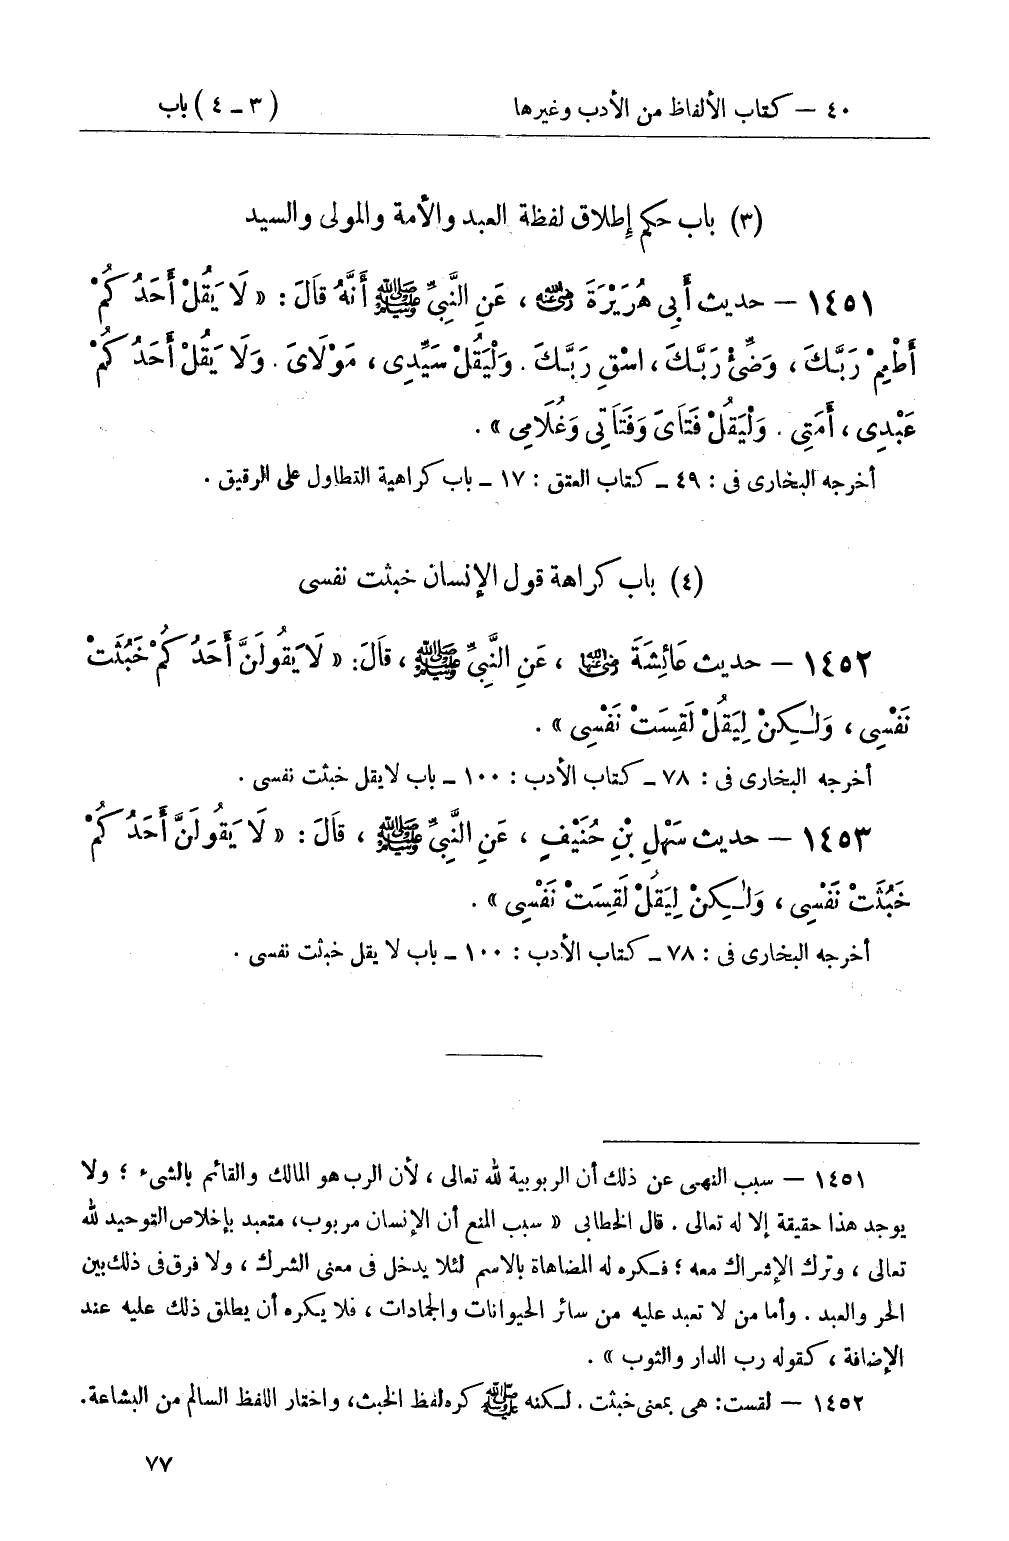 ٤٠ – كتاب الألفاظ من الأدب وغيرها (٣ – ٤) باب
(٣) باب حكم إطلاق لفظة العبد والأمة والمولى والسيد
١٤٥١ – حديث أَبِي هُرَيْرَةَ رضي الله عنه، عَنِ النَّبِيِّ ﷺ أَنَّهُ قَالَ: «لَا يَقُلْ أَحَدُكُمْ
أَطْعِمْ رَبَّكَ، وَضِّئْ رَبَّكَ، اسْقِ رَبَّكَ. وَلْيَقُلْ سَيِّدِى، مَوْلَاىَ. وَلَا يَقُلْ أَحَدُكُمْ
عَبْدِى، أَمَتِى. وَلْيَقُلْ فَتَاىَ وَفَتَاتِى وَغُلَامِى».
أخرجه البخارى فى: ٤٩ ــ كتاب العتق: ١٧ ــ باب كراهية التطاول على الرقيق.
(٤) باب كراهة قول الإنسان خبثت نفسى
١٤٥٢ – حديث عَائِشَةَ رضي الله عنها، عَنِ النَّبِيِّ ﷺ، قَالَ: «لَا يَقُولَنَّ أَحَدُكُمْ خَبُثَتْ
نَفْسِى، وَلٰكِنْ لِيَقُلْ لَقِسَتْ نَفْسِى».
أخرجه البخارى فى: ٧٨ ــ كتاب الأدب: ١٠٠ ــ باب لا يقل خبثت نفسى.
١٤٥٣ – حديث سَهْلِ بْنِ حُنَيْفٍ، عَنِ النَّبِيِّ ﷺ، قَالَ: «لَا يَقُولَنَّ أَحَدُكُمْ
خَبُثَتْ نَفْسِى، وَلٰكِنْ لِيَقُلْ لَقِسَتْ نَفْسِى».
أخرجه البخارى فى: ٧٨ ــ كتاب الأدب: ١٠٠ ــ باب لا يقل خبثت نفسى.
١٤٥١ – سبب النهى عن ذلك أن الربوبية لله تعالى، لأن الرب هو المالك والقائم بالشىء؛ ولا
يوجد هذا حقيقة إلا له تعالى. قال الخطابى «سبب المنع أن الإنسان مربوب، متعبد بإخلاص التوحيد لله
تعالى، وترك الإشراك معه؛ فكره له المضاهاة بالاسم لئلا يدخل فى معنى الشرك، ولا فرق فى ذلك بين
الحر والعبد. وأما من لا تعبد عليه من سائر الحيوانات والجمادات، فلا يكره أن يطلق ذلك عليه عند
الإضافة، كقوله رب الدار والثوب».
١٤٥٢ – لقست: هى بمعنى خبثت. لكنه ﷺ كره لفظ الخبث، واختار اللفظ السالم من البشاعة.
٧٧